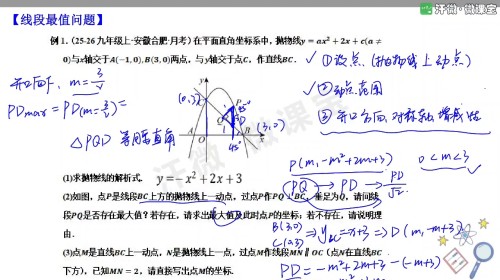 汗微·微课堂
【线段最值问题】
例 1.（25-26 九年级上·安徽合肥·月考）在平面直角坐标系中，抛物线y = ax² + 2x + c(a ≠
0)与x轴交于A(-1,0), B(3,0)两点，与y轴交于点C，作直线BC．
① 设点（抛物线上动点）
开口向下, m = 3/2
② 动点范围
PDmax = PD(m=3/2) =
③ 开口方向, 对称轴, 增减性
△PQD 等腰直角
(0,3)
y
C
P
45°
Q
D
(3,0)
A
O
45°
B
x
P(m, -m²+2m+3) 0<m<3
PQ → PD → PD/√2
(1)求抛物线的解析式. y = -x² + 2x + 3
(2)如图，点P是线段BC上方的抛物线上一动点，过点P作PQ ⊥ BC，垂足为Q，请问线
段PQ是否存在最大值？若存在，请求出最大值及此时点P的坐标；若不存在，请说明理
由．
B(3,0)
C(0,3)
⇒ yBC = -x+3 ⇒ D(m, -m+3)
(3)点M是直线BC上一动点，N是抛物线上一点，过点M作线段MN ∥ OC（点N在直线BC
下方），已知MN = 2，请直接写出点M的坐标．
PD = -m²+2m+3 - (-m+3)